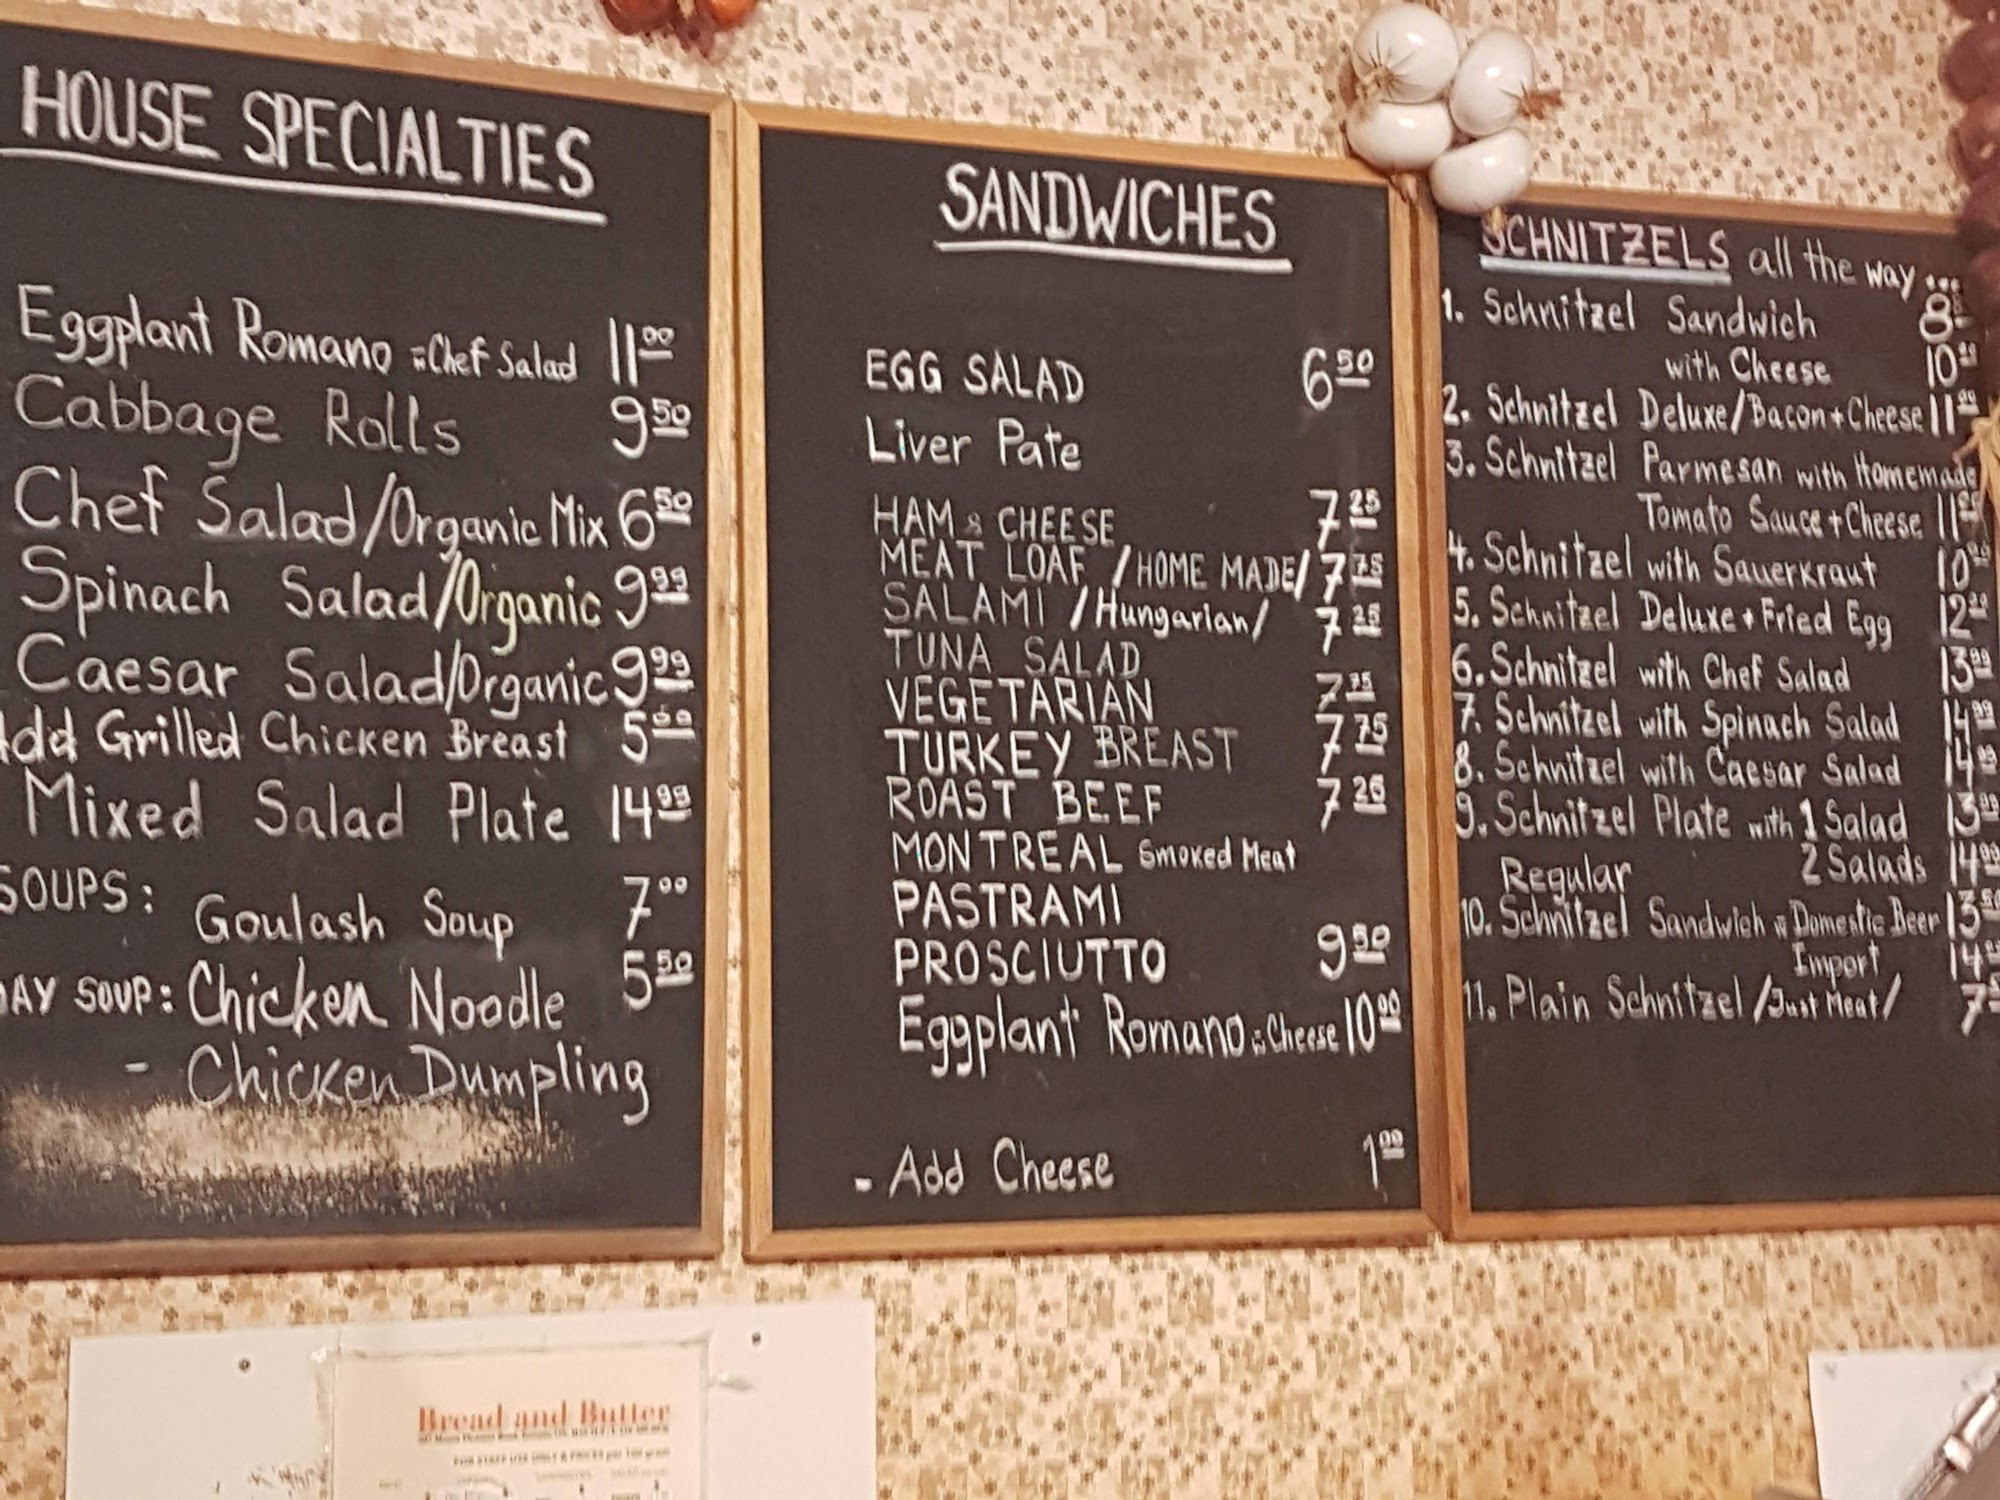 HOUSE SPECIALTIES
Eggplant Romano w Chef Salad 11.00
Cabbage Rolls 9.50
Chef Salad/Organic Mix 6.50
Spinach Salad/Organic 9.99
Caesar Salad/Organic 9.99
Add Grilled Chicken Breast 5.00
Mixed Salad Plate 14.99
SOUPS: Goulash Soup 7.00
DAY SOUP: Chicken Noodle 5.50
- Chicken Dumpling
SANDWICHES
EGG SALAD 6.50
Liver Pate
HAM & CHEESE 7.25
MEAT LOAF /HOME MADE/ 7.75
SALAMI /Hungarian/ 7.25
TUNA SALAD
VEGETARIAN 7.75
TURKEY BREAST 7.75
ROAST BEEF 7.25
MONTREAL Smoked Meat
PASTRAMI
PROSCIUTTO 9.50
Eggplant Romano w Cheese 10.00
- Add Cheese 1.00
SCHNITZELS all the way...
1. Schnitzel Sandwich 8
with Cheese 10
2. Schnitzel Deluxe/Bacon+Cheese 11
3. Schnitzel Parmesan with Homemade
Tomato Sauce+Cheese 11
4. Schnitzel with Sauerkraut 10
5. Schnitzel Deluxe+Fried Egg 12
6. Schnitzel with Chef Salad 13.99
7. Schnitzel with Spinach Salad 14.99
8. Schnitzel with Caesar Salad 14.99
9. Schnitzel Plate with 1 Salad 13.99
Regular 2 Salads 14.99
10. Schnitzel Sandwich w Domestic Beer 13.50
Import 14
11. Plain Schnitzel /Just Meat/ 7
Bread and Butter
FOR STAFF USE ONLY